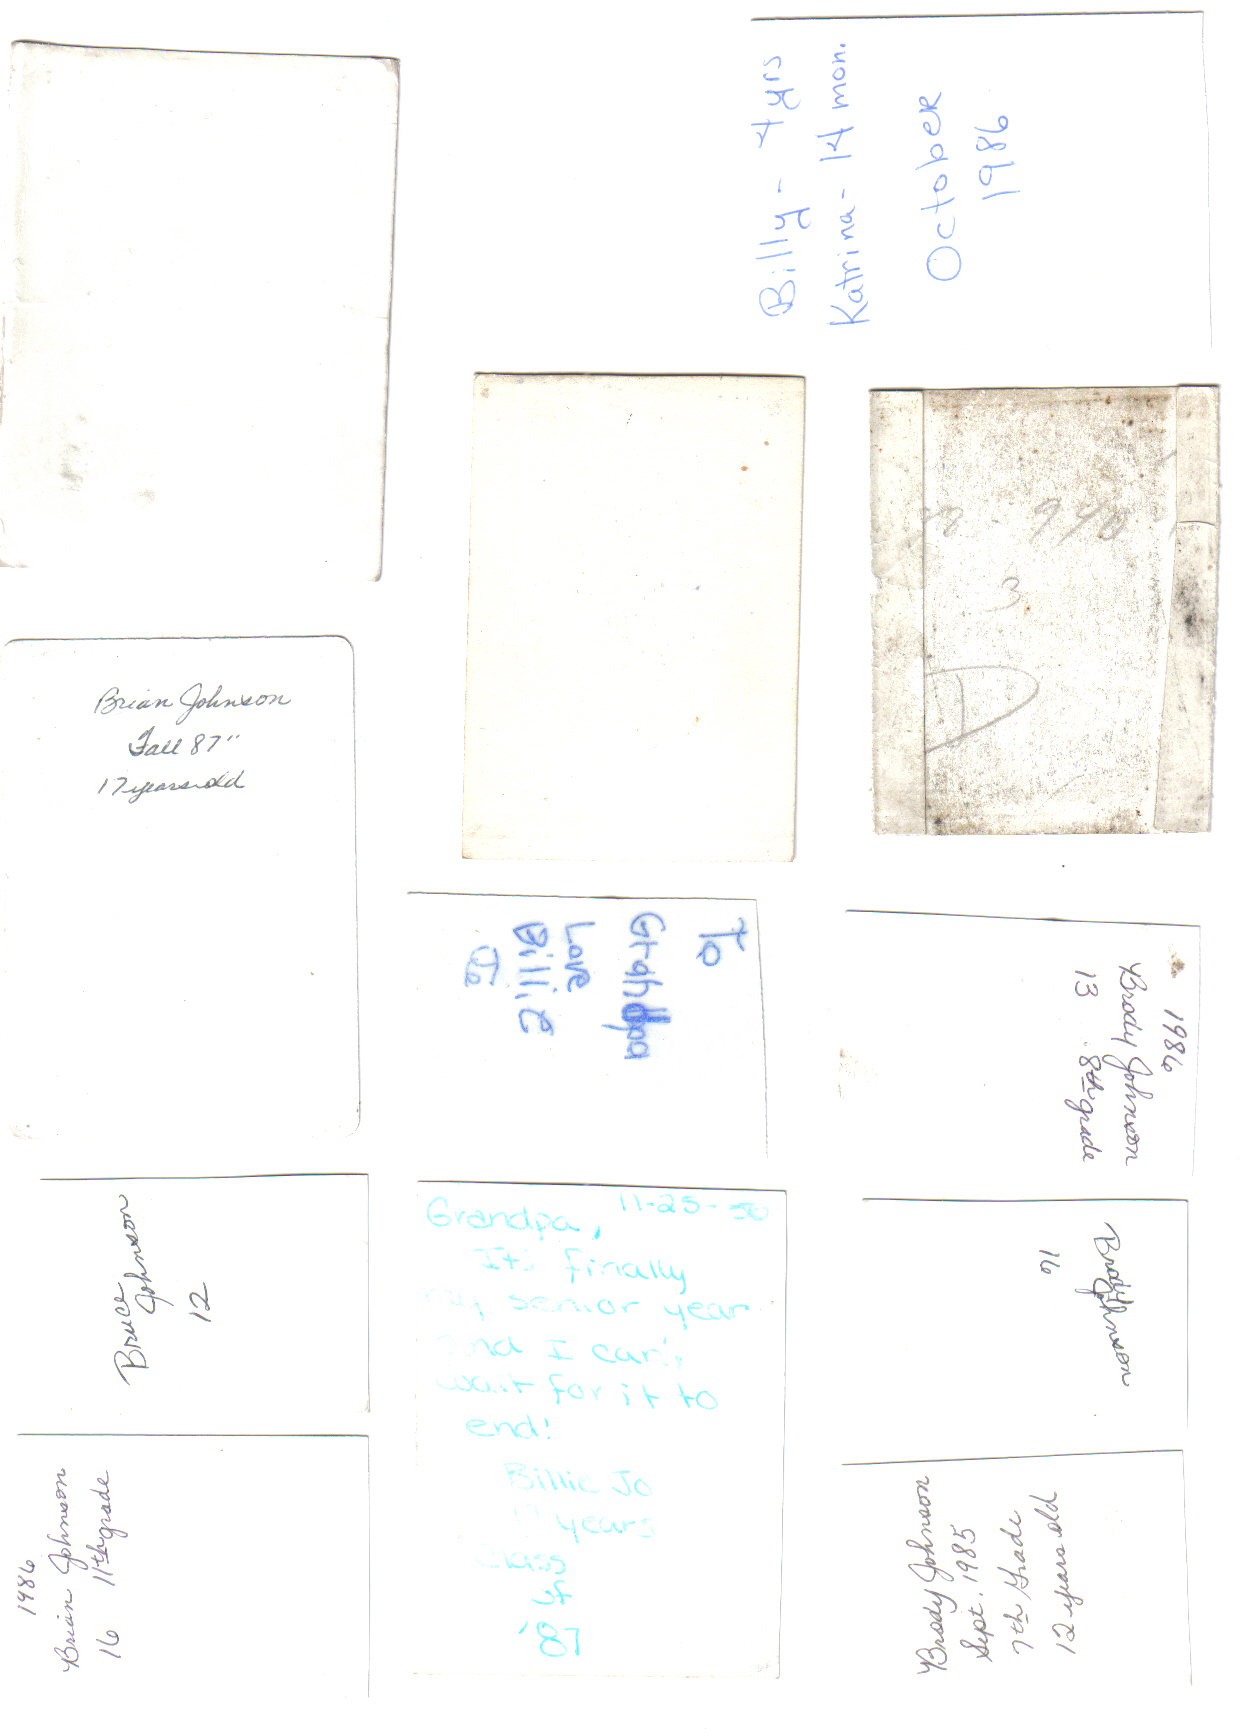 Billy - 4 yrs
Katrina - 14 mon.
October
1986
Brian Johnson
Fall 87"
17 years old
To
Grandpa
Love
Billie
Jo
1986
Brody Johnson
13 8th grade
Bruce
Johnson
12
Grandpa, 11-25-
It's finally
my senior year
and I can't
wait for it to
end!
Billie Jo
17 years
Class
of
'87
Brody
Johnson
16
1986
Brian Johnson
16 11th grade
Brody Johnson
Sept. 1985
7th Grade
12 years old